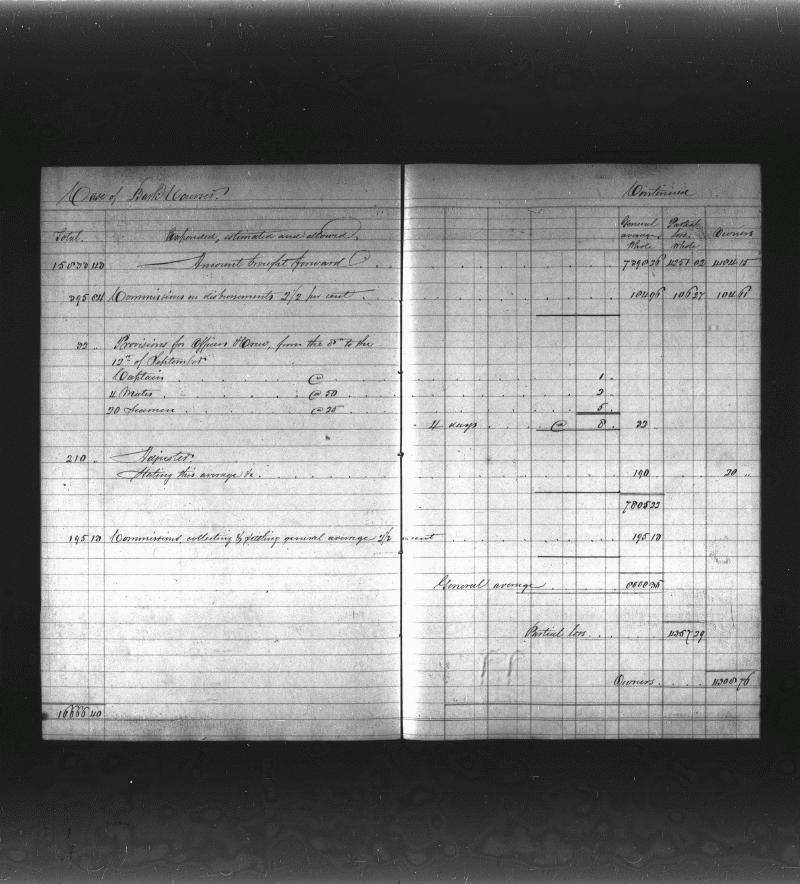 Case of Bark Courser. Continued
Total. Expended, estimated and allowed. General average Whole Partial loss. Whole Owners
15833 43 Amount brought forward 7398 26 4251 02 4184 15
395 84 Commissions on disbursements 2 1/2 per cent. 184 96 106 27 104 61
32 .. Provisions for Officers & Crew, from the 8th to the
12th of September
Captain @ 1 .
4 Mates @ 50 2 .
20 Seamen @ 25 5 .
4 days @ 8 . 32
210 .. Adjuster.
Stating this average &c. 190 20 ..
7805 22
195 13 Commissions, collecting & settling general average 2 1/2 cent 195 13
General average 8000 35
Partial loss 4357 29
Owners 4308 76
16666 40